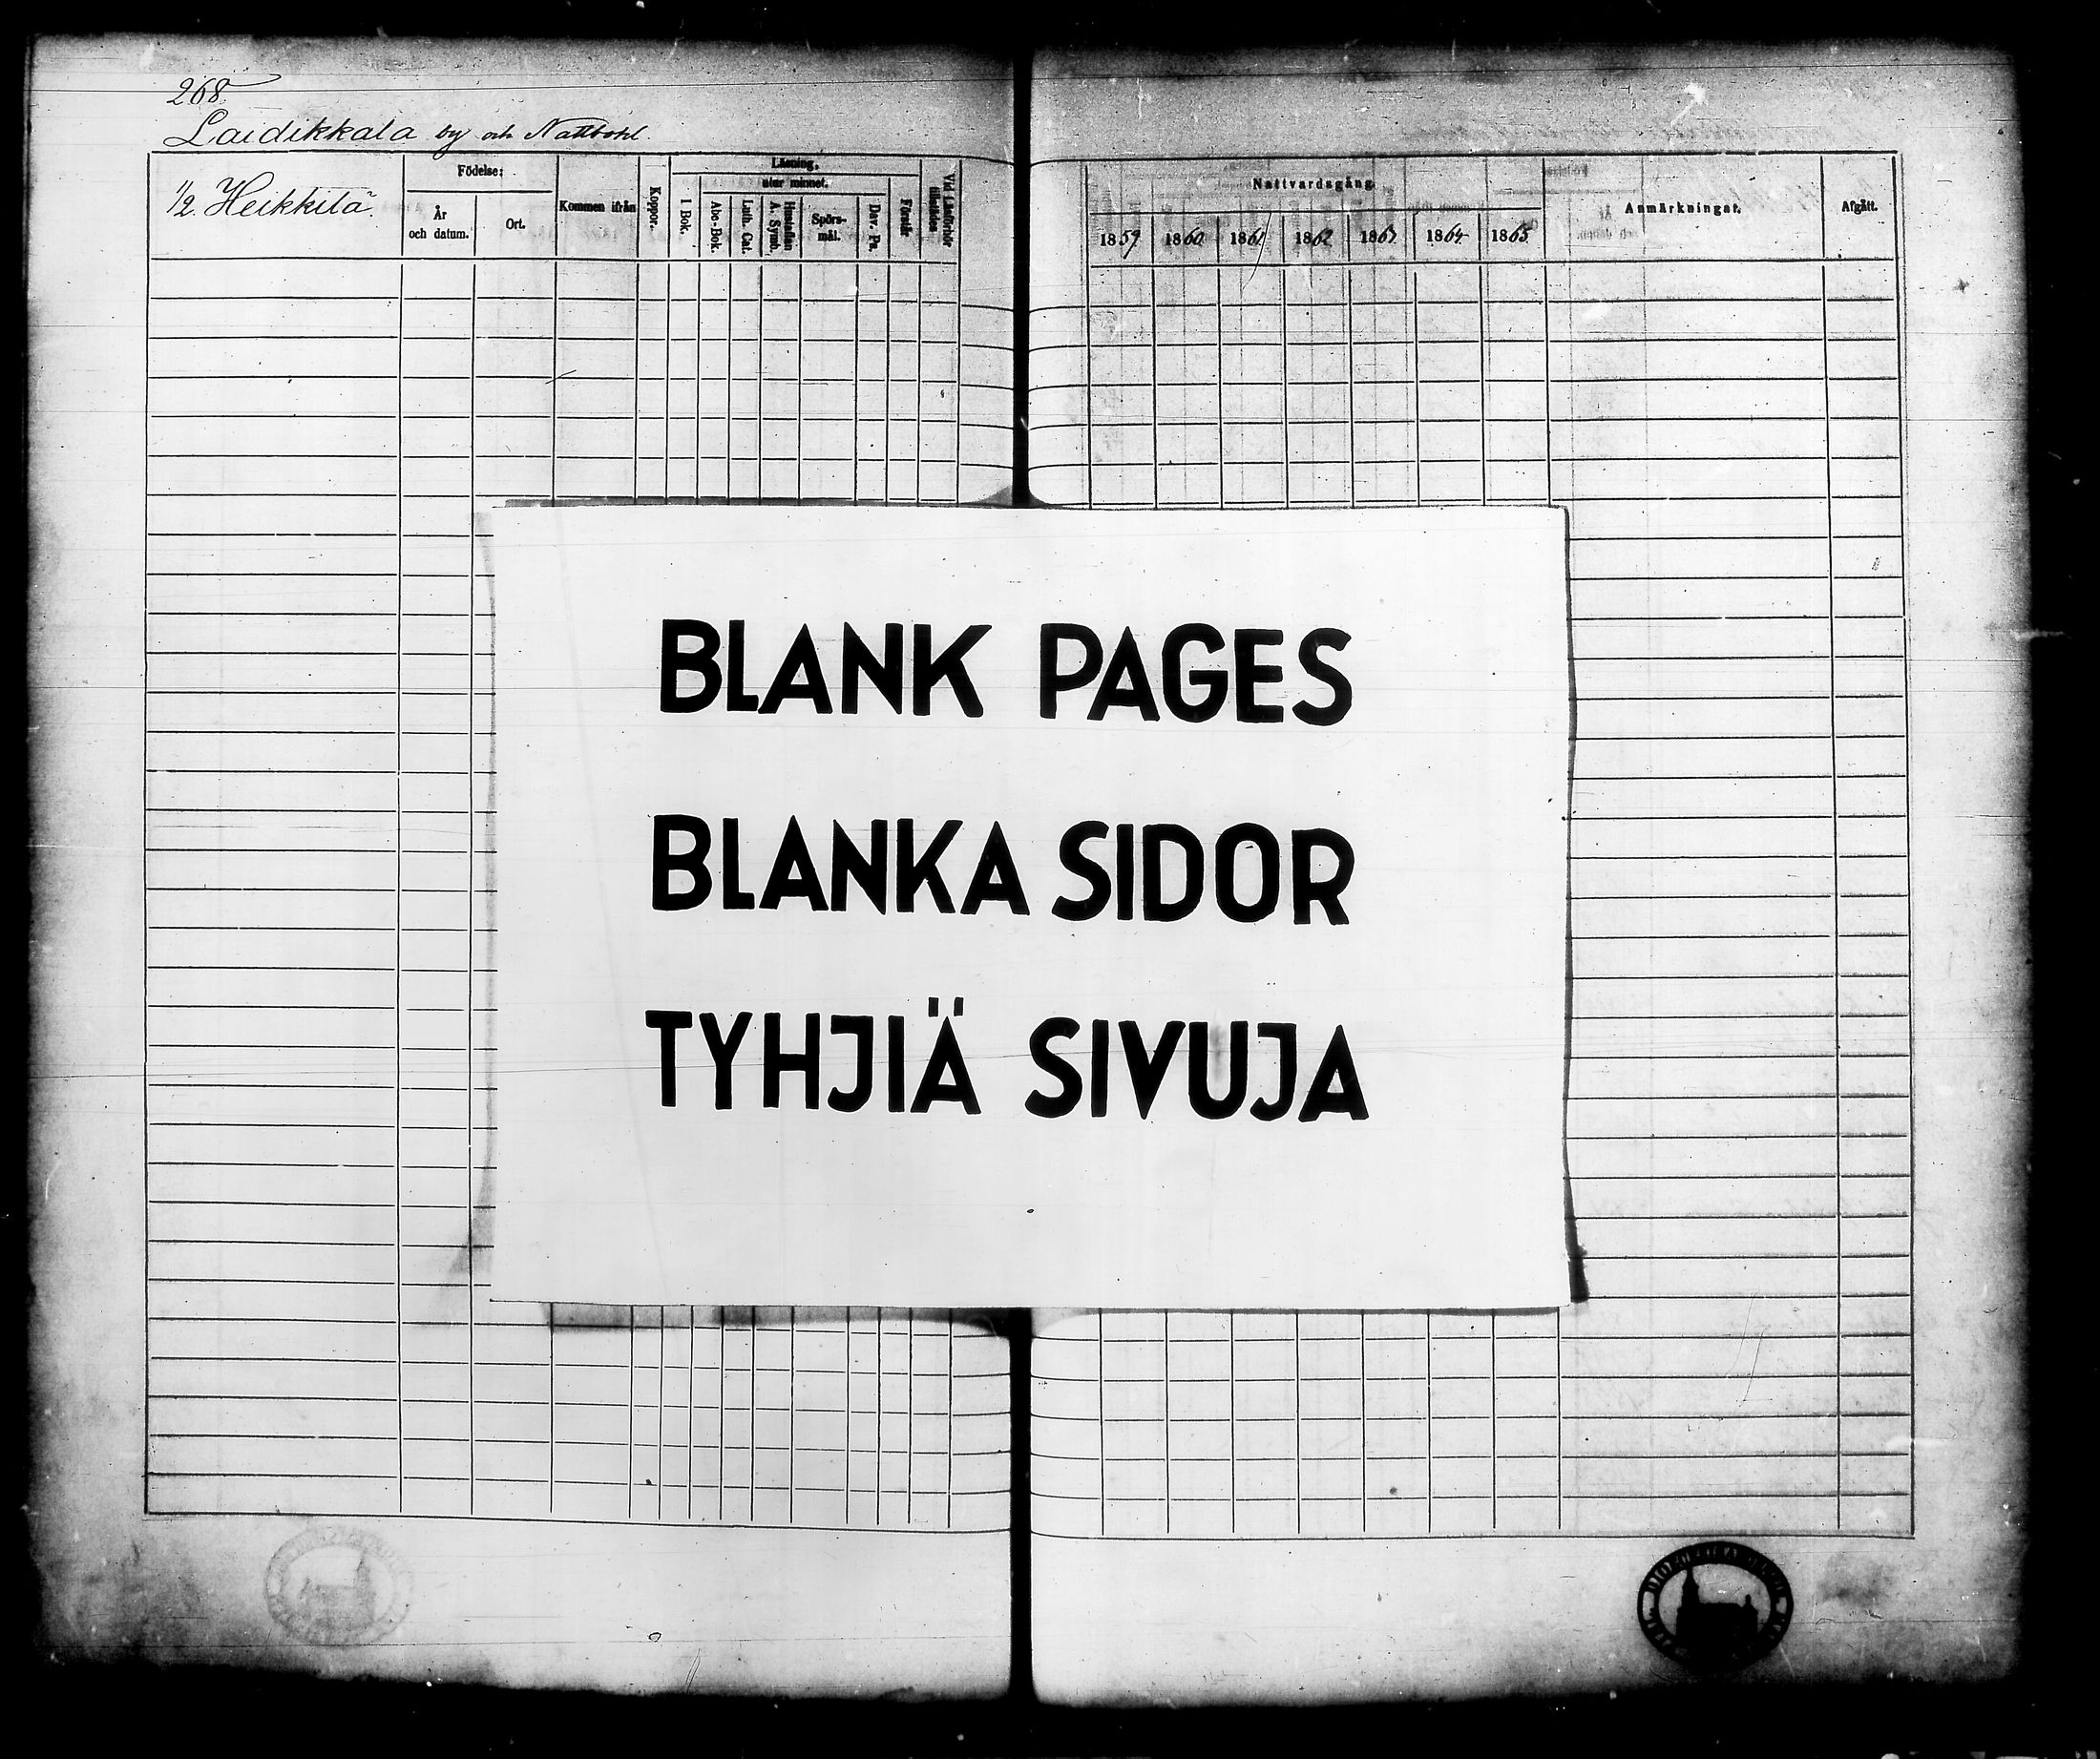 268
Laidikkala by och Nattbohl.
1/2. Heikkilä.
Födelse:
År
och datum.
Ort.
Kommen ifrån
Koppor.
Läsning.
utur minnet.
I Bok.
Abc-Bok.
Luth. Cat.
Hustaflan
A. Symb.
Spörs-
mål.
Dav. Ps.
Förstår
Vid Läsförhör
tillstädes
Nattvardsgång.
1859
1860
1861
1862
1863
1864
1865
Anmärkningar.
Afgått.
BLANK PAGES
BLANKA SIDOR
TYHJIÄ SIVUJA